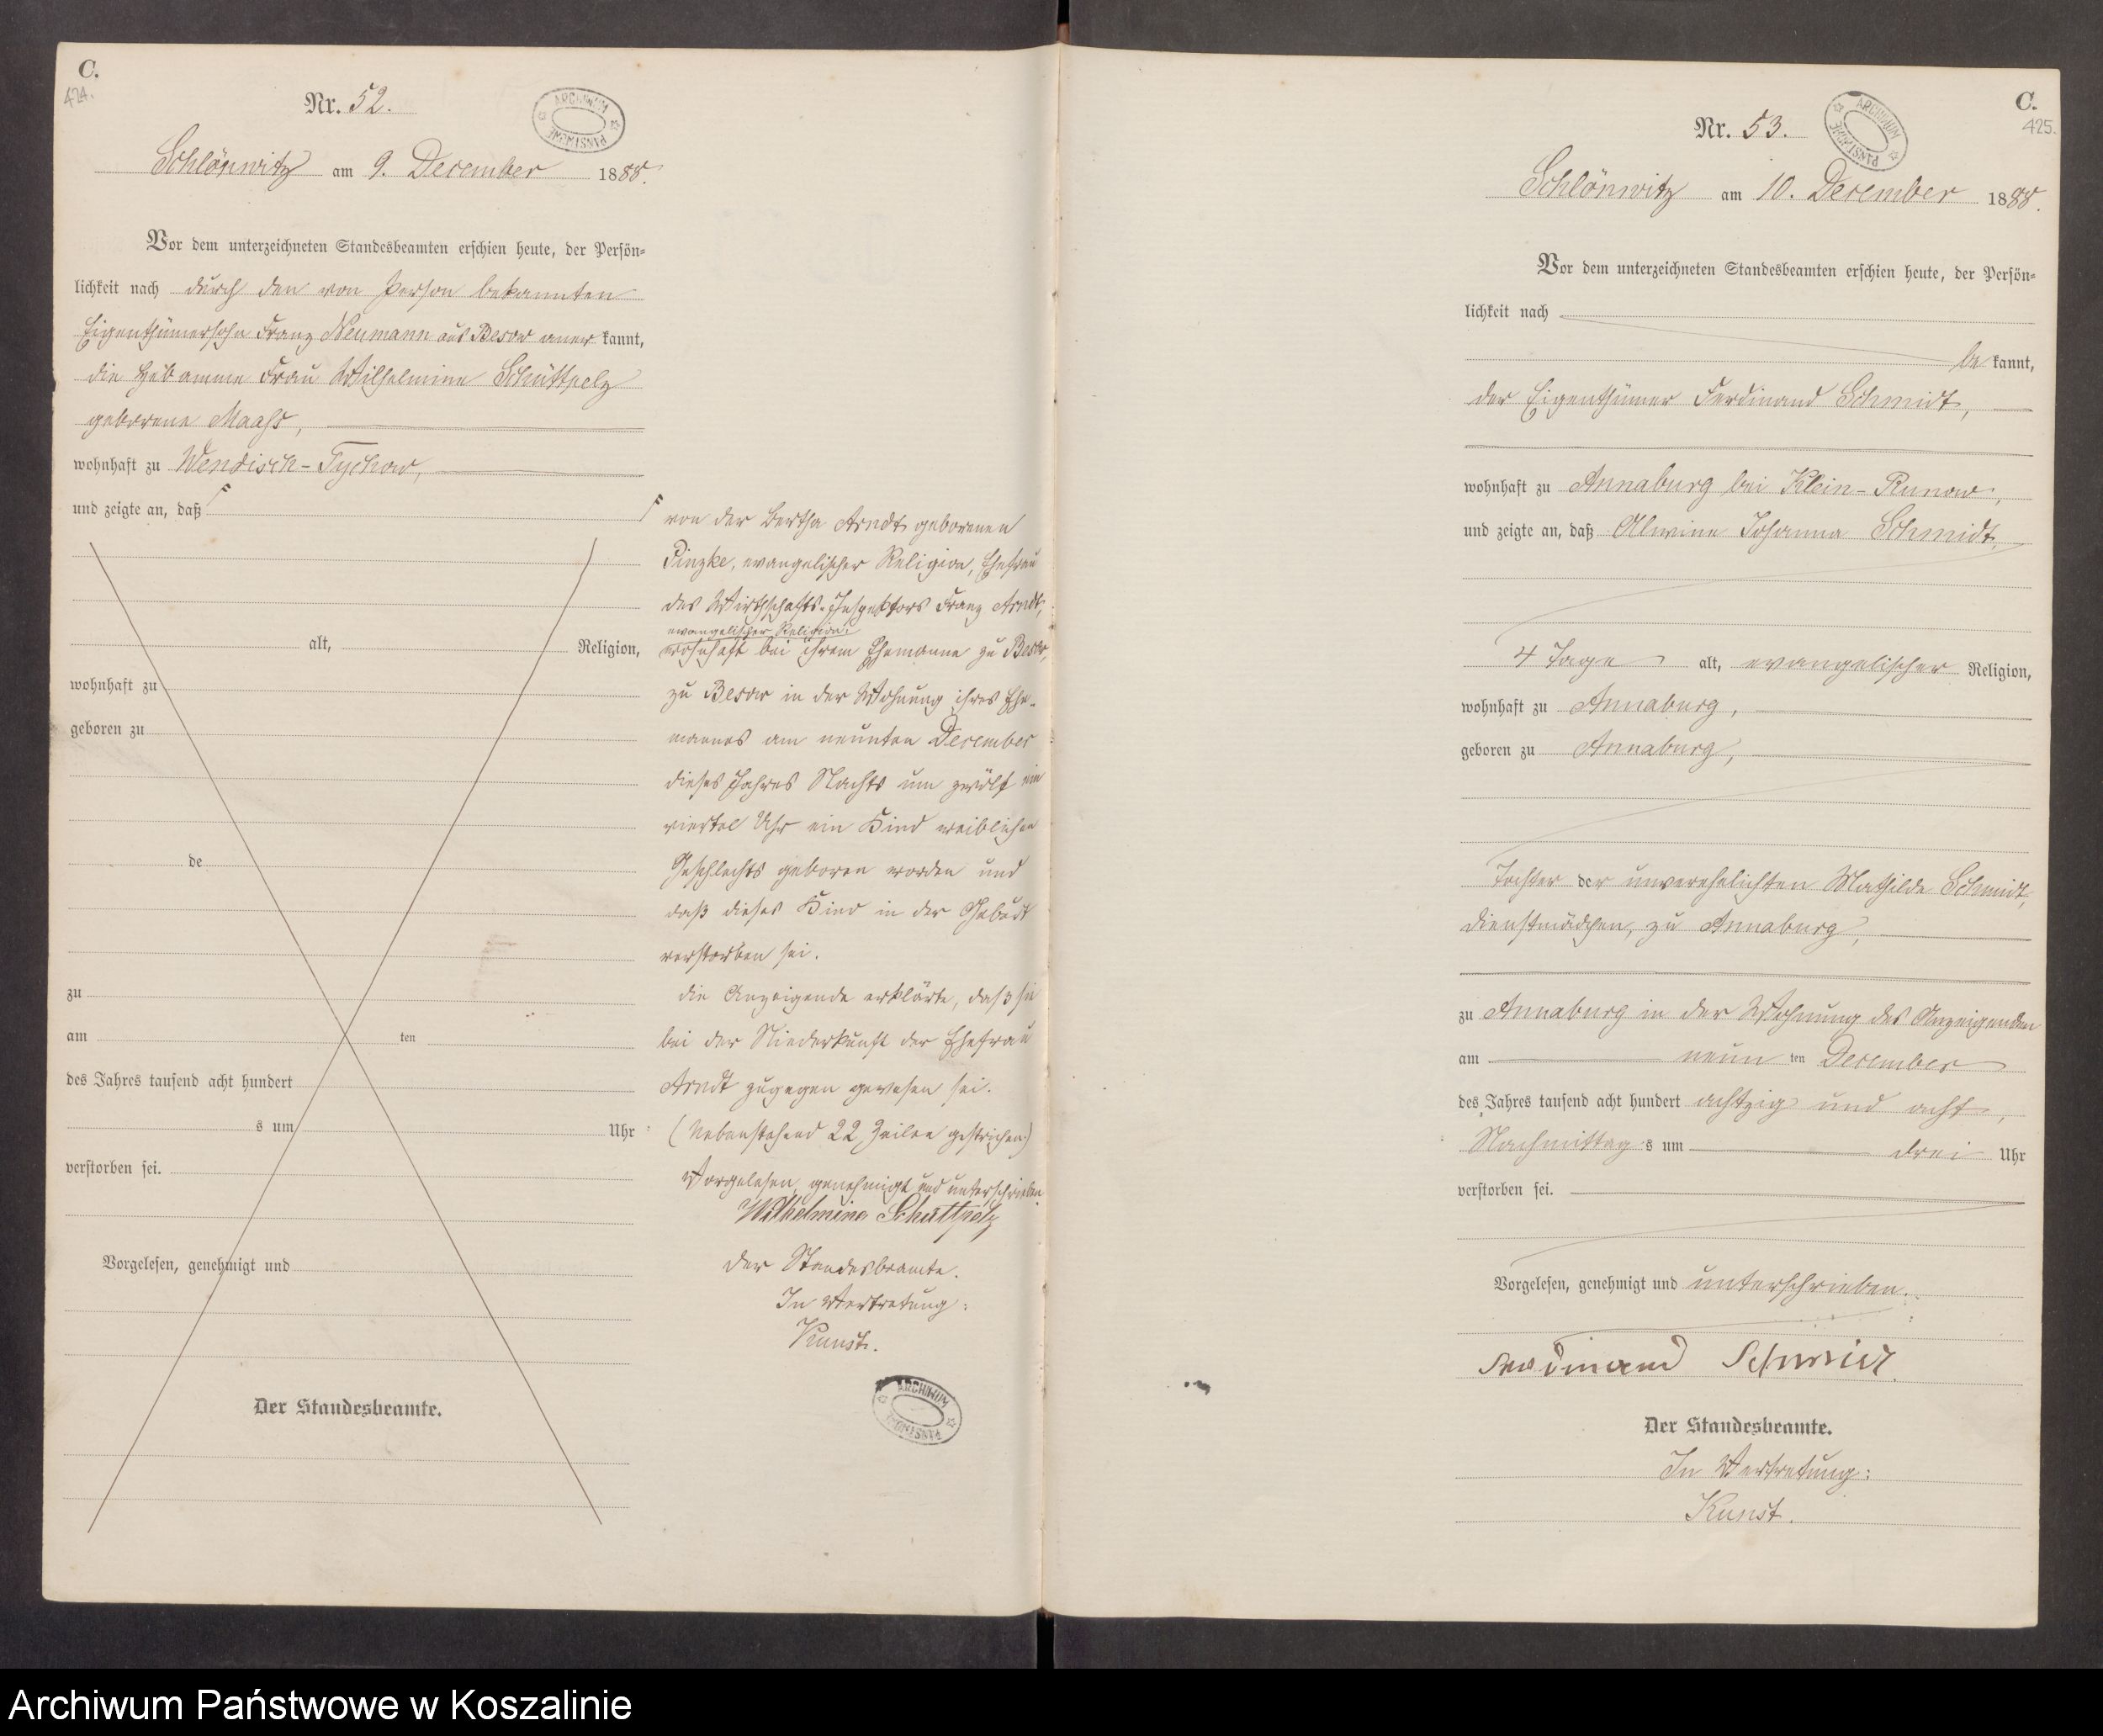 C.
424.
Nr. 52.
ARCHIWUM PAŃSTWOWE
Schlönwitz am 9. December 1888.
Vor dem unterzeichneten Standesbeamten erschien heute, der Persön-
lichkeit nach durch den von Person bekannten
Eigenthümersohn Franz Neumann aus Besow aner kannt,
die Hebamme Frau Wilhelmine Schüttpelz
geborene Maaß,
wohnhaft zu Wendisch-Tychow,
und zeigte an, daß
alt, Religion,
wohnhaft zu
geboren zu
de
zu
am ten
des Jahres tausend acht hundert
s um Uhr
verstorben sei.
Vorgelesen, genehmigt und
Der Standesbeamte.
von der Bertha Arndt geborenen
Pinzke, evangelischer Religion, Ehefrau
des Wirthschafts-Inspektors Franz Arndt,
evangelischer Religion,
wohnhaft bei ihrem Ehemanne zu Besow,
zu Besow in der Wohnung ihres Ehe-
mannes am neunten December
dieses Jahres Nachts um zwölf ein
viertel Uhr ein Kind weiblichen
Geschlechts geboren worden und
daß dieses Kind in der Geburt
verstorben sei.
Die Anzeigende erklärte, daß sie
bei der Niederkunft der Ehefrau
Arndt zugegen gewesen sei.
(Nebenstehend 22 Zeilen gestrichen)
Vorgelesen, genehmigt und unterschrieben.
Wilhelmine Schüttpelz
Der Standesbeamte.
In Vertretung:
Kunst.
ARCHIWUM PAŃSTWOWE
C.
425.
Nr. 53.
ARCHIWUM PAŃSTWOWE
Schlönwitz am 10. December 1888.
Vor dem unterzeichneten Standesbeamten erschien heute, der Persön-
lichkeit nach
be kannt,
der Eigenthümer Ferdinand Schmidt,
wohnhaft zu Annaburg bei Klein-Runow,
und zeigte an, daß Alwine Johanna Schmidt,
4 Tage alt, evangelischer Religion,
wohnhaft zu Annaburg,
geboren zu Annaburg,
Tochter der unverehelichten Mathilde Schmidt,
Dienstmädchen, zu Annaburg,
zu Annaburg in der Wohnung des Anzeigenden
am neun ten December
des Jahres tausend acht hundert achtzig und acht,
Nachmittag s um drei Uhr
verstorben sei.
Vorgelesen, genehmigt und unterschrieben.
Ferdinand Schmidt.
Der Standesbeamte.
In Vertretung:
Kunst.
Archiwum Państwowe w Koszalinie